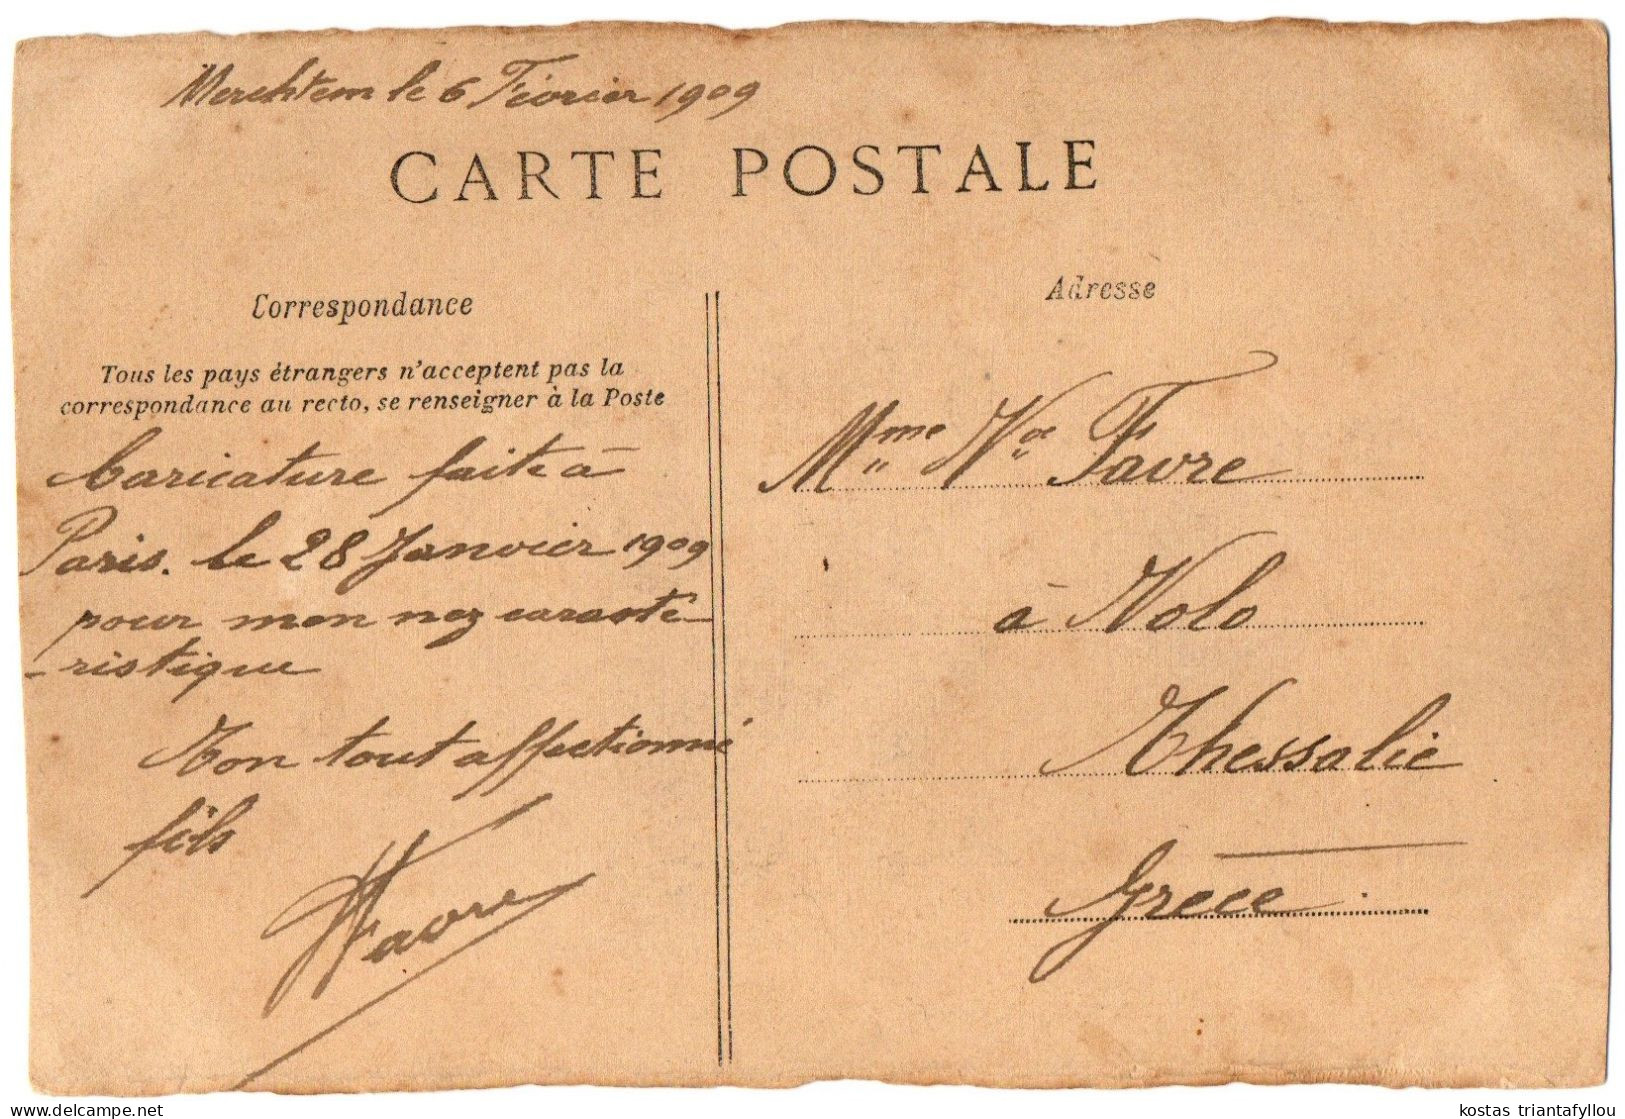 Merchtem le 6 Février 1909
CARTE POSTALE
Correspondance
Tous les pays étrangers n'acceptent pas la
correspondance au recto, se renseigner à la Poste
Caricature faite à
Paris. le 28 Janvier 1909
pour mon nez caracté-
-ristique
Ton tout affectionné
fils
Favre
Adresse
Mme Vve Favre
à Volo
Thessalie
Grèce.
delcampe.net
kostas triantafyllou